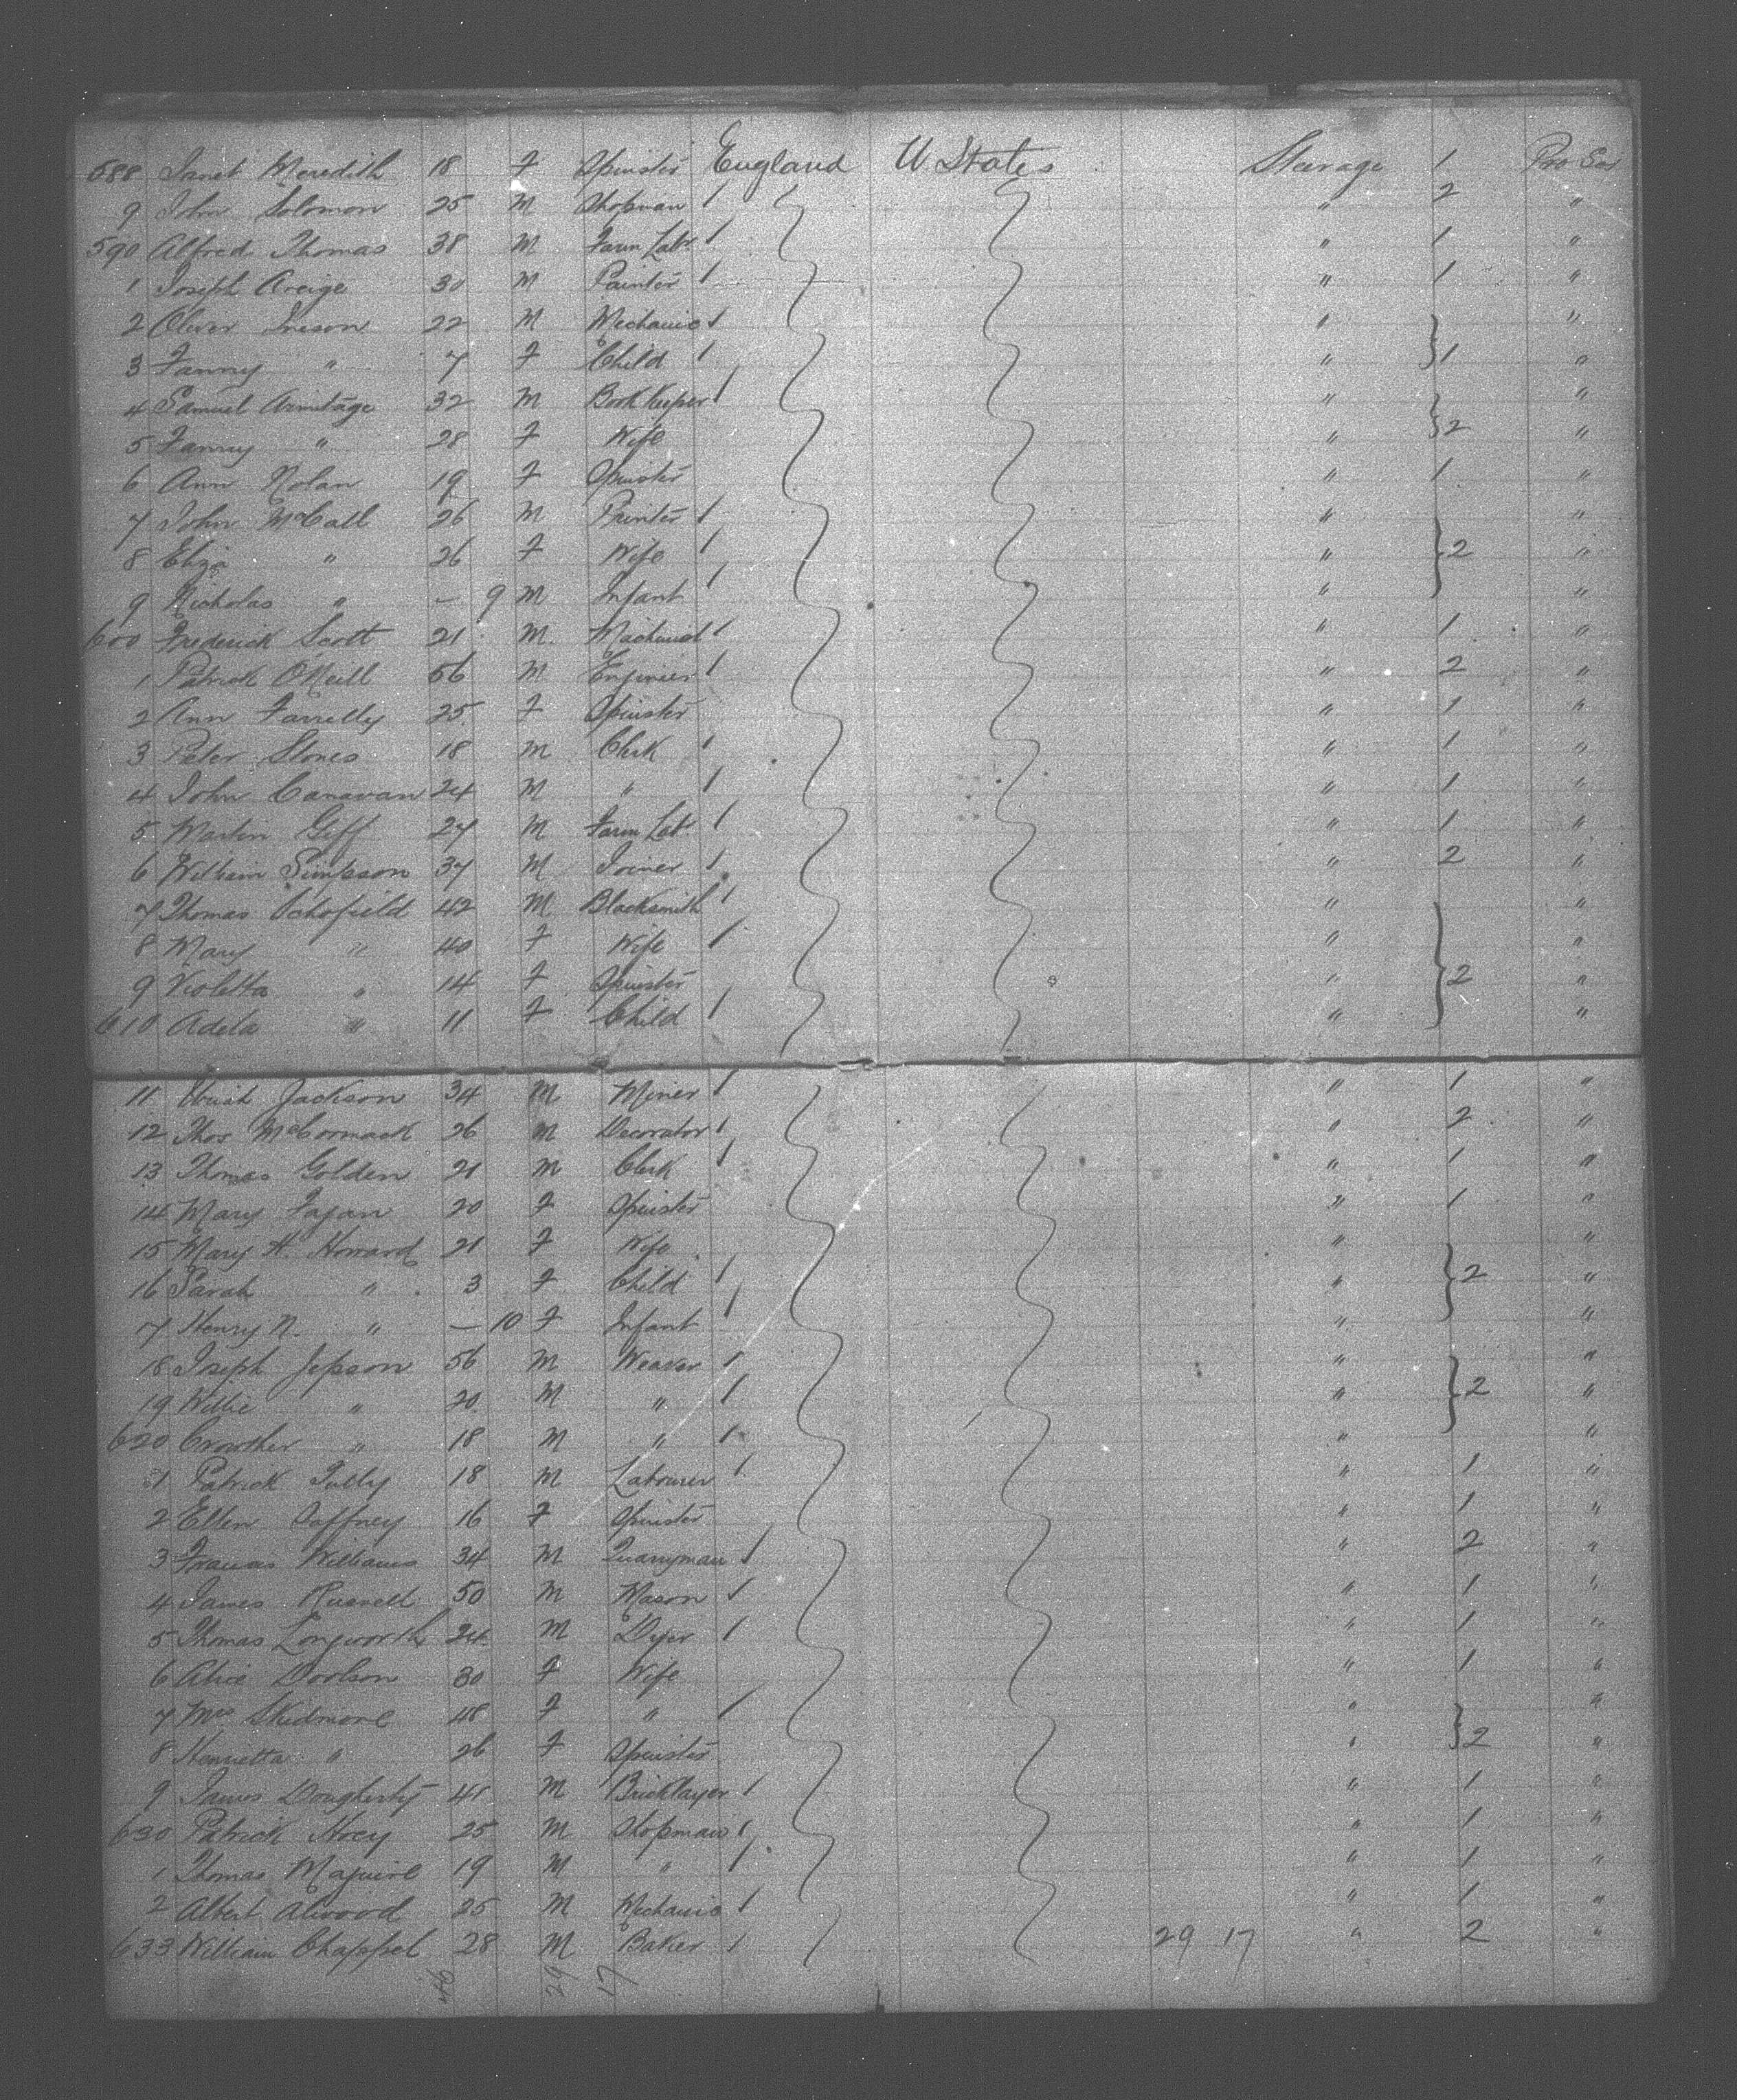 588 Janet Meredith 18 F Spinster England U. States Steerage 1 Pro Ses
9 John Solomon 25 M Shopman / " 2 "
590 Alfred Thomas 38 M Farm Labr / " 1 "
1 Joseph 30 M Painter / " 1 "
2 Oliver Ineson 22 M Mechanic / " "
3 Fanny " 7 F Child / " } 1 "
4 Samuel Armitage 32 M Book Keeper / " "
5 Fanny " 28 F Wife " } 2 "
6 Ann Nolan 19 F Spinster " 1 "
7 John McCall 26 M / " "
8 Eliza " 26 F Wife / " } 2 "
9 Nicholas " — 9 M Infant / " "
600 Frederick Scott 21 M Machinist / " 1 "
1 Patrick O'Neill 56 M Engineer / " 2 "
2 Ann Farrelly 25 F Spinster " 1 "
3 Peter Stones 18 M Clerk / " 1 "
4 John Canavan 24 M " / " 1 "
5 Martin Geff 27 M Farm Labr / " 1 "
6 William Simpson 37 M Joiner / " 2 "
7 Thomas Schofield 42 M Blacksmith / " "
8 Mary " 40 F Wife / " "
9 Violetta " 14 F Spinster " } 2 "
610 Adela " 11 F Child / " "
11 Jackson 34 M Miner / " 1 "
12 Thos McCormack 26 M Decorator / " 2 "
13 Thomas Golden 21 M Clerk / " 1 "
14 Mary Fagan 20 F Spinster " 1 "
15 Mary A. Howard 21 F Wife " "
16 Sarah " 3 F Child / " } 2 "
17 Henry N. " — 10 F Infant / " "
18 Joseph Jepson 56 M Weaver / " "
19 Willie " 20 M " / " } 2 "
620 Crowther " 18 M " / " "
1 Patrick Tully 18 M Labourer / " 1 "
2 Ellen Gaffney 16 F Spinster " 1 "
3 Francis Williams 34 M Quarryman / " 2 "
4 James Russell 50 M Mason / " 1 "
5 Thomas Longworth 24 M Dyer / " 1 "
6 Alice Doolson 30 F Wife " 1 "
7 Mrs Skidmore 48 F " / " "
8 Henrietta " 26 F Spinster " } 2 "
9 James Dougherty 41 M Bricklayer / " 1 "
630 Patrick Hoey 25 M Shopman / " 1 "
1 Thomas Maguire 19 M " / " 1 "
2 Albert Atwood 25 M Mechanic / " 1 "
633 William Chappel 28 M Baker / 29 17 " 2 "
29 17